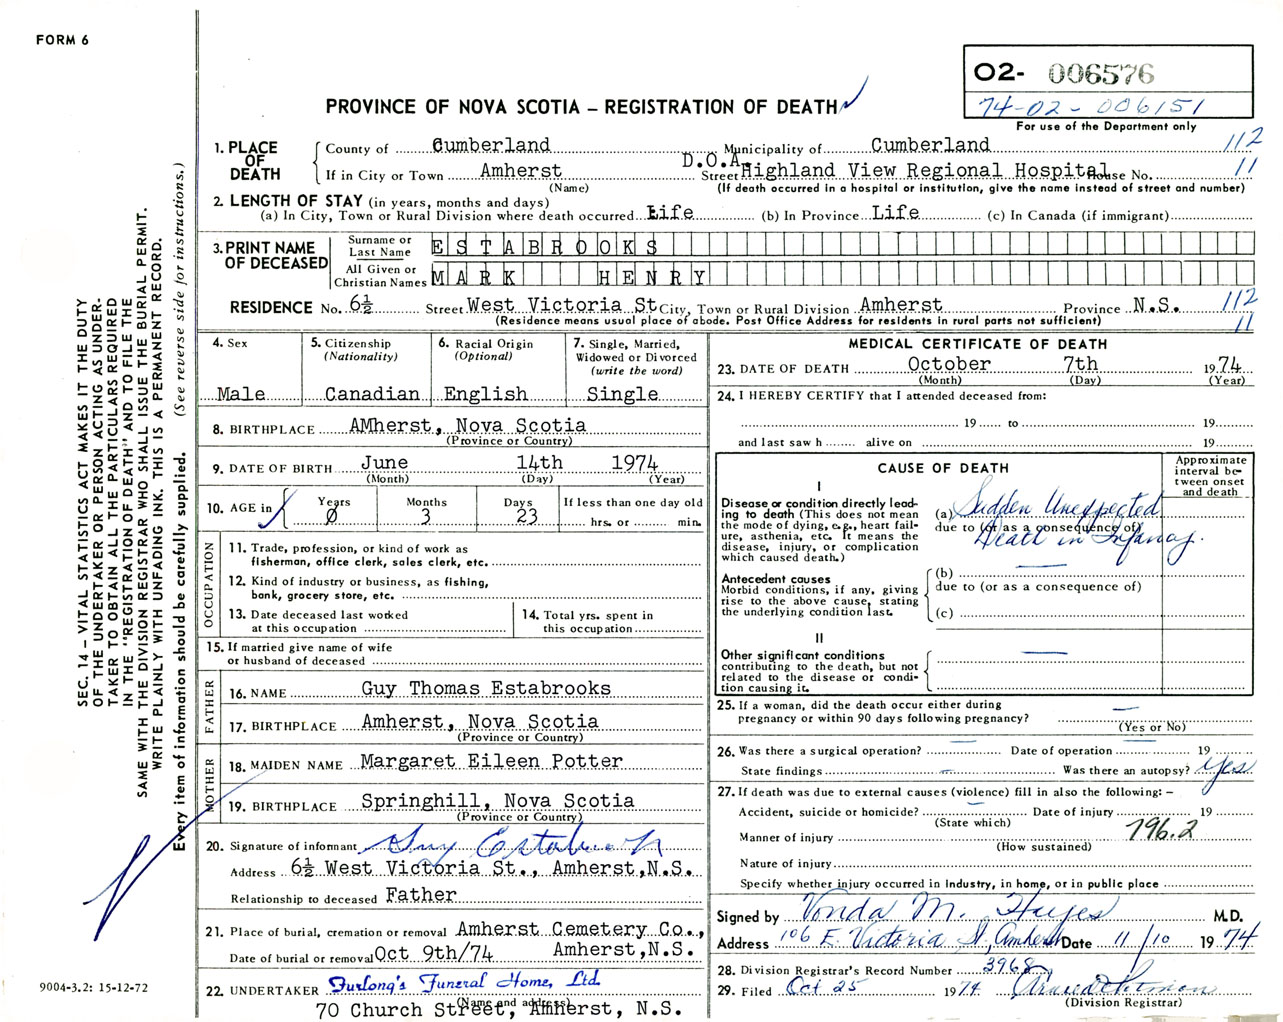 FORM 6
O2- 006576
74-02-006151
For use of the Department only
PROVINCE OF NOVA SCOTIA – REGISTRATION OF DEATH
1. PLACE OF DEATH
County of Cumberland Municipality of Cumberland 112
If in City or Town Amherst D.O.A. Street Highland View Regional Hospital House No. 11
(Name) (If death occurred in a hospital or institution, give the name instead of street and number)
2. LENGTH OF STAY (in years, months and days)
(a) In City, Town or Rural Division where death occurred Life (b) In Province Life (c) In Canada (if immigrant)
3. PRINT NAME OF DECEASED
Surname or Last Name ESTABROOKS
All Given or Christian Names MARK HENRY
RESIDENCE No. 6½ Street West Victoria St City, Town or Rural Division Amherst Province N.S. 112
(Residence means usual place of abode. Post Office Address for residents in rural parts not sufficient) 11
4. Sex
Male
5. Citizenship
(Nationality)
Canadian
6. Racial Origin
(Optional)
English
7. Single, Married,
Widowed or Divorced
(write the word)
Single
8. BIRTHPLACE AMherst, Nova Scotia
(Province or Country)
9. DATE OF BIRTH June 14th 1974
(Month) (Day) (Year)
10. AGE in
Years Months Days If less than one day old
0 3 23 hrs. or min.
OCCUPATION
11. Trade, profession, or kind of work as
fisherman, office clerk, sales clerk, etc.
12. Kind of industry or business, as fishing,
bank, grocery store, etc.
13. Date deceased last worked
at this occupation
14. Total yrs. spent in
this occupation
15. If married give name of wife
or husband of deceased
FATHER
16. NAME Guy Thomas Estabrooks
17. BIRTHPLACE Amherst, Nova Scotia
(Province or Country)
MOTHER
18. MAIDEN NAME Margaret Eileen Potter
19. BIRTHPLACE Springhill, Nova Scotia
(Province or Country)
20. Signature of informant Guy Estabrook
Address 6½ West Victoria St., Amherst,N.S.
Relationship to deceased Father
21. Place of burial, cremation or removal Amherst Cemetery Co.,
Date of burial or removal Oct 9th/74 Amherst,N.S.
22. UNDERTAKER Furlong's Funeral Home, Ltd.
(Name and address)
70 Church Street, Amherst, N.S.
MEDICAL CERTIFICATE OF DEATH
23. DATE OF DEATH October 7th 1974
(Month) (Day) (Year)
24. I HEREBY CERTIFY that I attended deceased from:
19 to 19
and last saw h alive on 19
CAUSE OF DEATH
Approximate interval between onset and death
I
Disease or condition directly leading to death (This does not mean the mode of dying, e.g., heart failure, asthenia, etc. It means the disease, injury, or complication which caused death.)
(a) Sudden Unexpected
due to (or as a consequence of)
Death in Infancy.
Antecedent causes
Morbid conditions, if any, giving rise to the above cause, stating the underlying condition last.
(b)
due to (or as a consequence of)
(c)
II
Other significant conditions
contributing to the death, but not related to the disease or condition causing it.
25. If a woman, did the death occur either during
pregnancy or within 90 days following pregnancy?
(Yes or No)
26. Was there a surgical operation? Date of operation 19
State findings Was there an autopsy? yes
27. If death was due to external causes (violence) fill in also the following: –
Accident, suicide or homicide? Date of injury 19
(State which)
Manner of injury 796.2
(How sustained)
Nature of injury
Specify whether injury occurred in industry, in home, or in public place
Signed by Vonda M. Hayes M.D.
Address 106 E. Victoria St, Amherst Date 11/10 1974
28. Division Registrar's Record Number 3968
29. Filed Oct 25 1974
(Division Registrar)
SEC. 14 – VITAL STATISTICS ACT MAKES IT THE DUTY
OF THE UNDERTAKER OR PERSON ACTING AS UNDER-
TAKER TO OBTAIN ALL THE PARTICULARS REQUIRED
IN THE "REGISTRATION OF DEATH" AND TO FILE THE
SAME WITH THE DIVISION REGISTRAR WHO SHALL ISSUE THE BURIAL PERMIT.
WRITE PLAINLY WITH UNFADING INK. THIS IS A PERMANENT RECORD.
Every item of information should be carefully supplied. (See reverse side for instructions.)
9004-3.2: 15-12-72